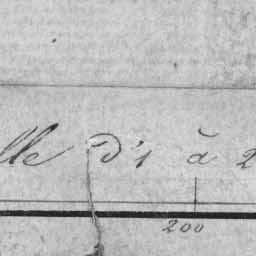 lle d'1 à 2
200